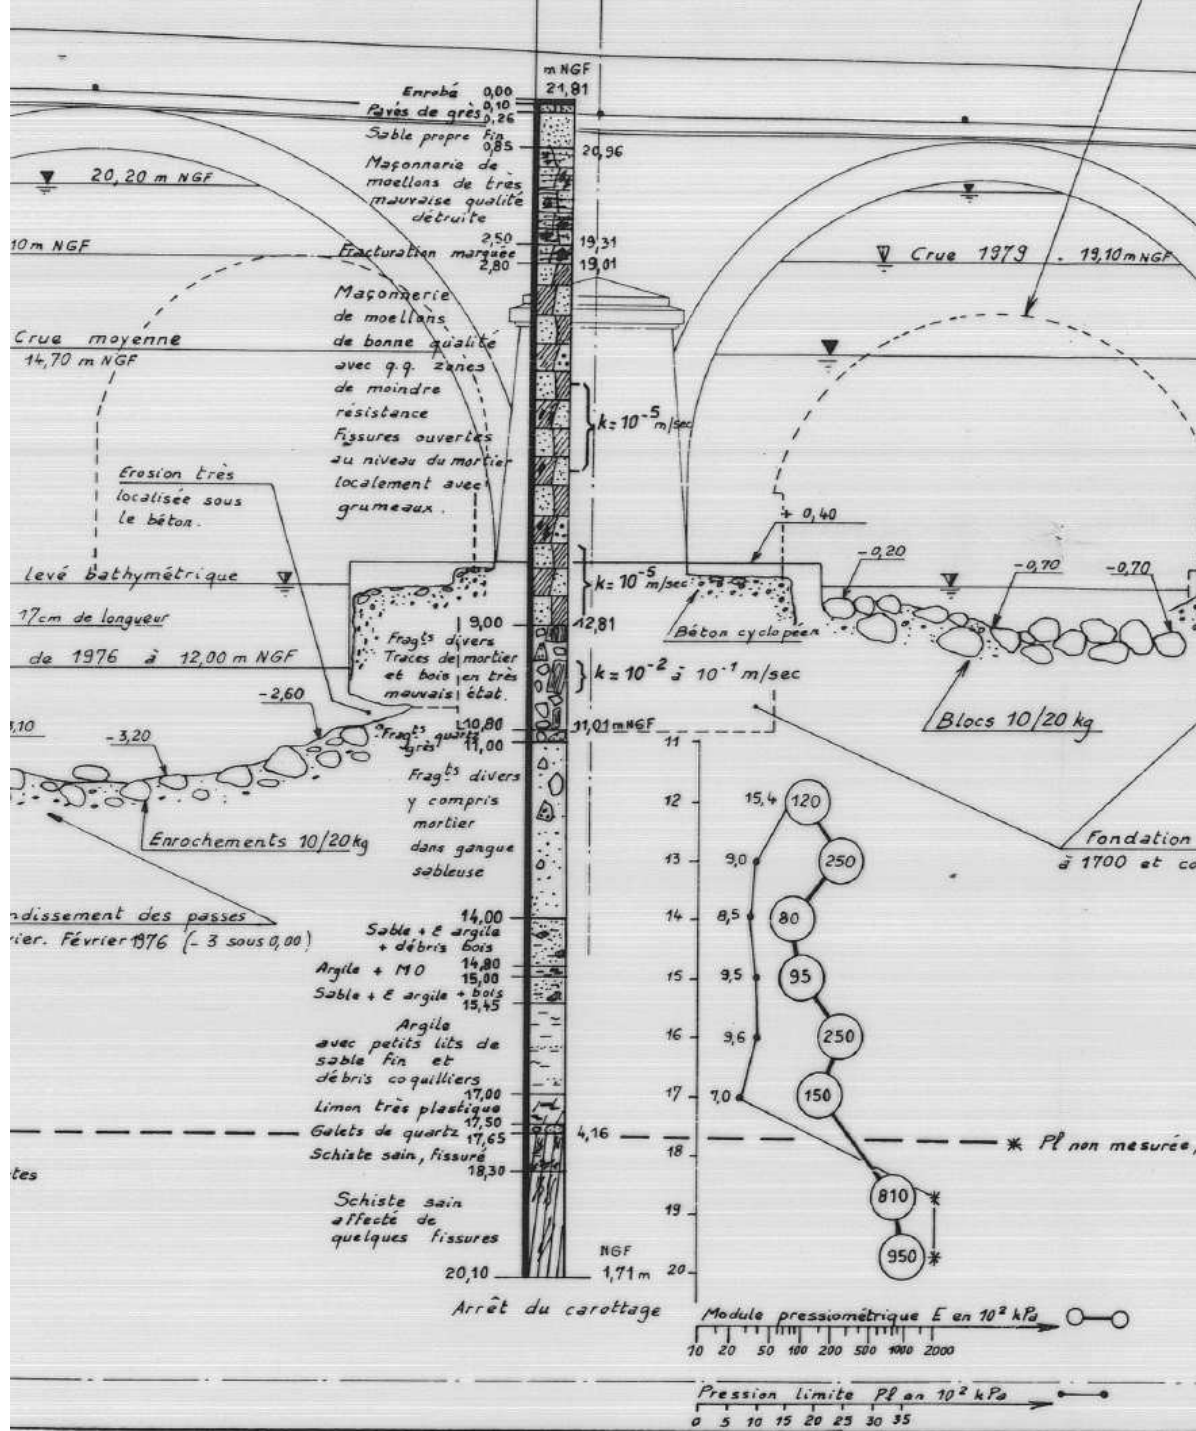 m NGF
Enrobé 0,00 21,81
0,10
Pavés de grès 0,26
Sable propre fin
0,85 20,96
Maçonnerie de
moellons de très
mauvaise qualité
détruite
2,50 19,31
Fracturation marquée
2,80 19,01
Maçonnerie
de moellons
de bonne qualité
avec q.q. zones
de moindre
résistance
Fissures ouvertes
au niveau du mortier
localement avec
grumeaux.
k = 10⁻⁵ m/sec
k = 10⁻⁵ m/sec
9,00 12,81
Fragts divers
Traces de mortier
et bois en très
mauvais état.
k = 10⁻² à 10⁻¹ m/sec
10,80 11,01 m NGF
Fragts quartz
grès
11,00
Fragts divers
y compris
mortier
dans gangue
sableuse
14,00
Sable + E argile
+ débris bois
14,80
Argile + MO
15,00
Sable + E argile + bois
15,45
Argile
avec petits lits de
sable fin et
débris coquilliers
17,00
Limon très plastique
17,50
Galets de quartz
17,65 4,16
Schiste sain, fissuré
18,30
Schiste sain
affecté de
quelques fissures
NGF
20,10 1,71 m
Arrêt du carottage
20,20 m NGF
10 m NGF
Crue moyenne
14,70 m NGF
Erosion très
localisée sous
le béton.
levé bathymétrique
17cm de longueur
de 1976 à 12,00 m NGF
-2,60
,10
-3,20
Enrochements 10/20 kg
ndissement des passes
ier. Février 1976 (- 3 sous 0,00)
tes
Crue 1979 . 19,10 m NGF
+ 0,40
-0,20
-0,70
-0,70
Béton cyclopéen
Blocs 10/20 kg
Fondation
à 1700 et co
11
12 15,4 120
13 9,0 250
14 8,5 80
15 9,5 95
16 9,6 250
17 7,0 150
18
* Pl non mesurée,
810 *
19
950 *
20
Module pressiométrique E en 10² kPa
10 20 50 100 200 500 1000 2000
Pression limite Pl en 10² kPa
0 5 10 15 20 25 30 35